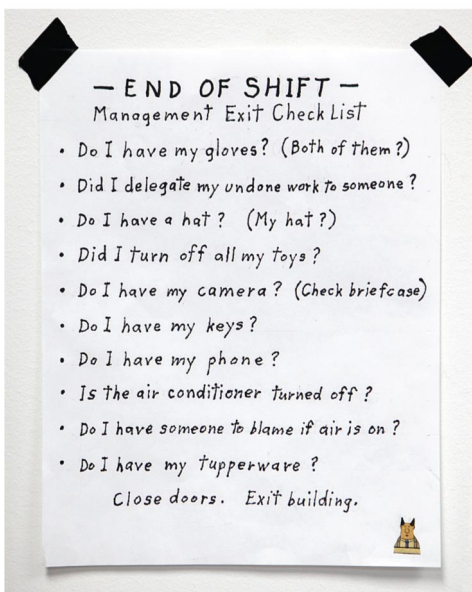 — END OF SHIFT —
Management Exit Check List
• Do I have my gloves? (Both of them?)
• Did I delegate my undone work to someone?
• Do I have a hat? (My hat?)
• Did I turn off all my toys?
• Do I have my camera? (Check briefcase)
• Do I have my keys?
• Do I have my phone?
• Is the air conditioner turned off?
• Do I have someone to blame if air is on?
• Do I have my tupperware?
Close doors. Exit building.